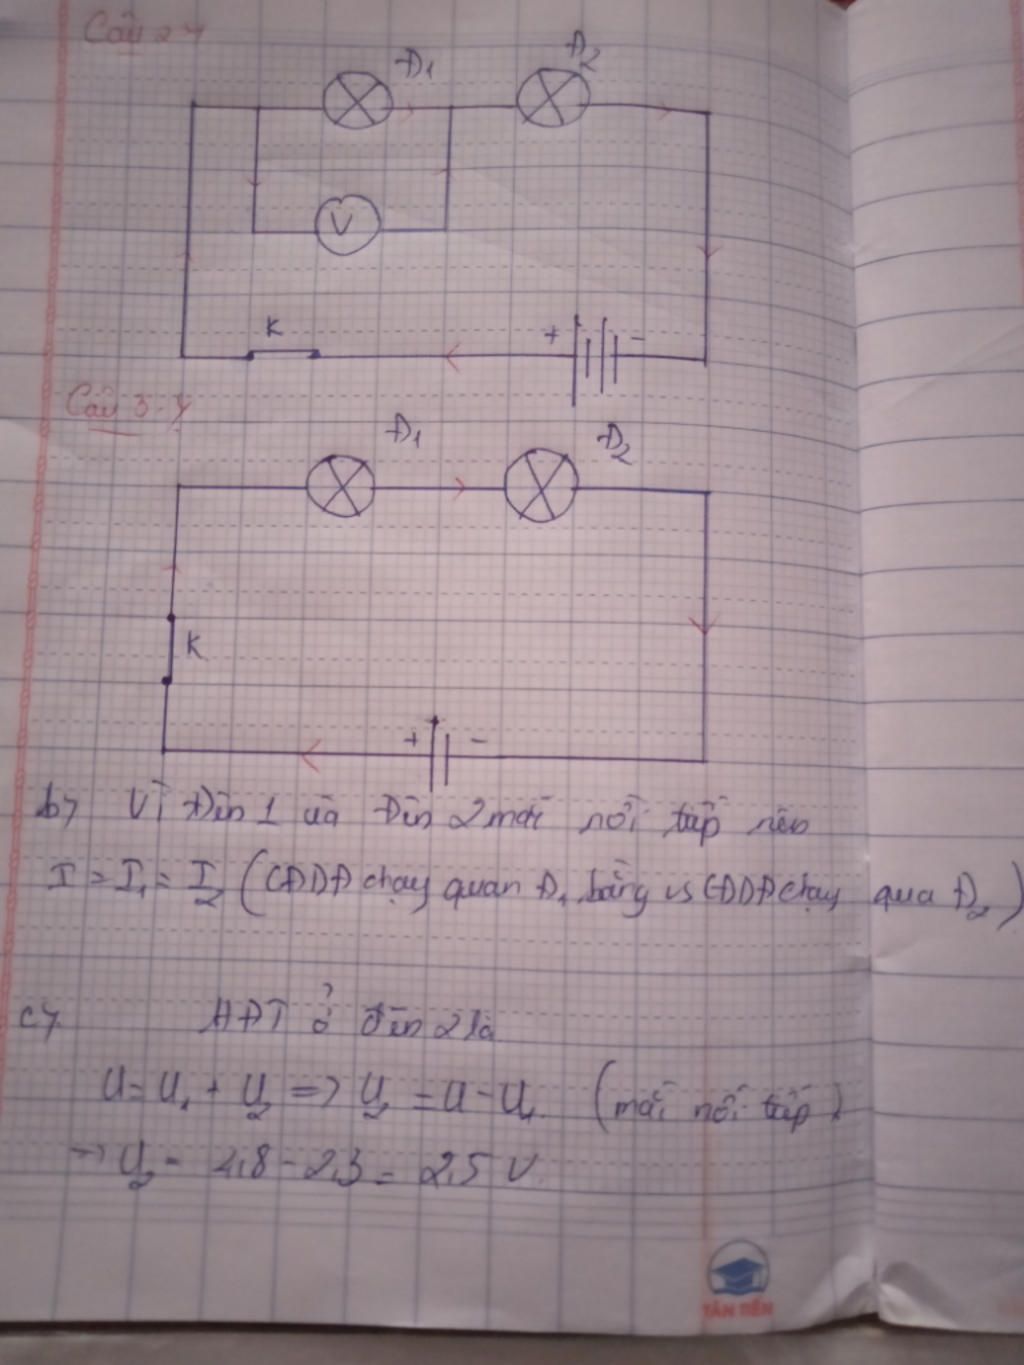 Câu 2:
Đ1 Đ2
V
K + -
Câu 3:
Đ1 Đ2
K
+ -
b) Vì Đèn 1 và Đèn 2 mắc nối tiếp nên
I = I1 = I2 (CĐDĐ chạy quan Đ1 bằng vs CĐDĐ chạy qua Đ2)
c) HĐT ở đèn 2 là
U = U1 + U2 => U2 = U - U1. (mắc nối tiếp)
=> U2 = 4,8 - 2,3 = 2,5 V.
TÂN TIẾN